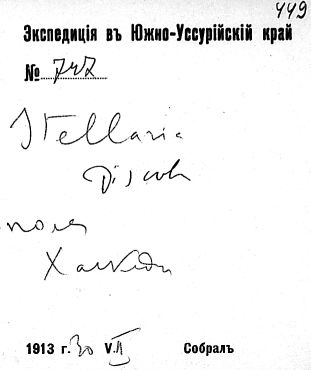 449
Экспедиція въ Южно-Уссурійскій край
№ 747
Stellaria
поле
1913 г. 30 VII Собралъ